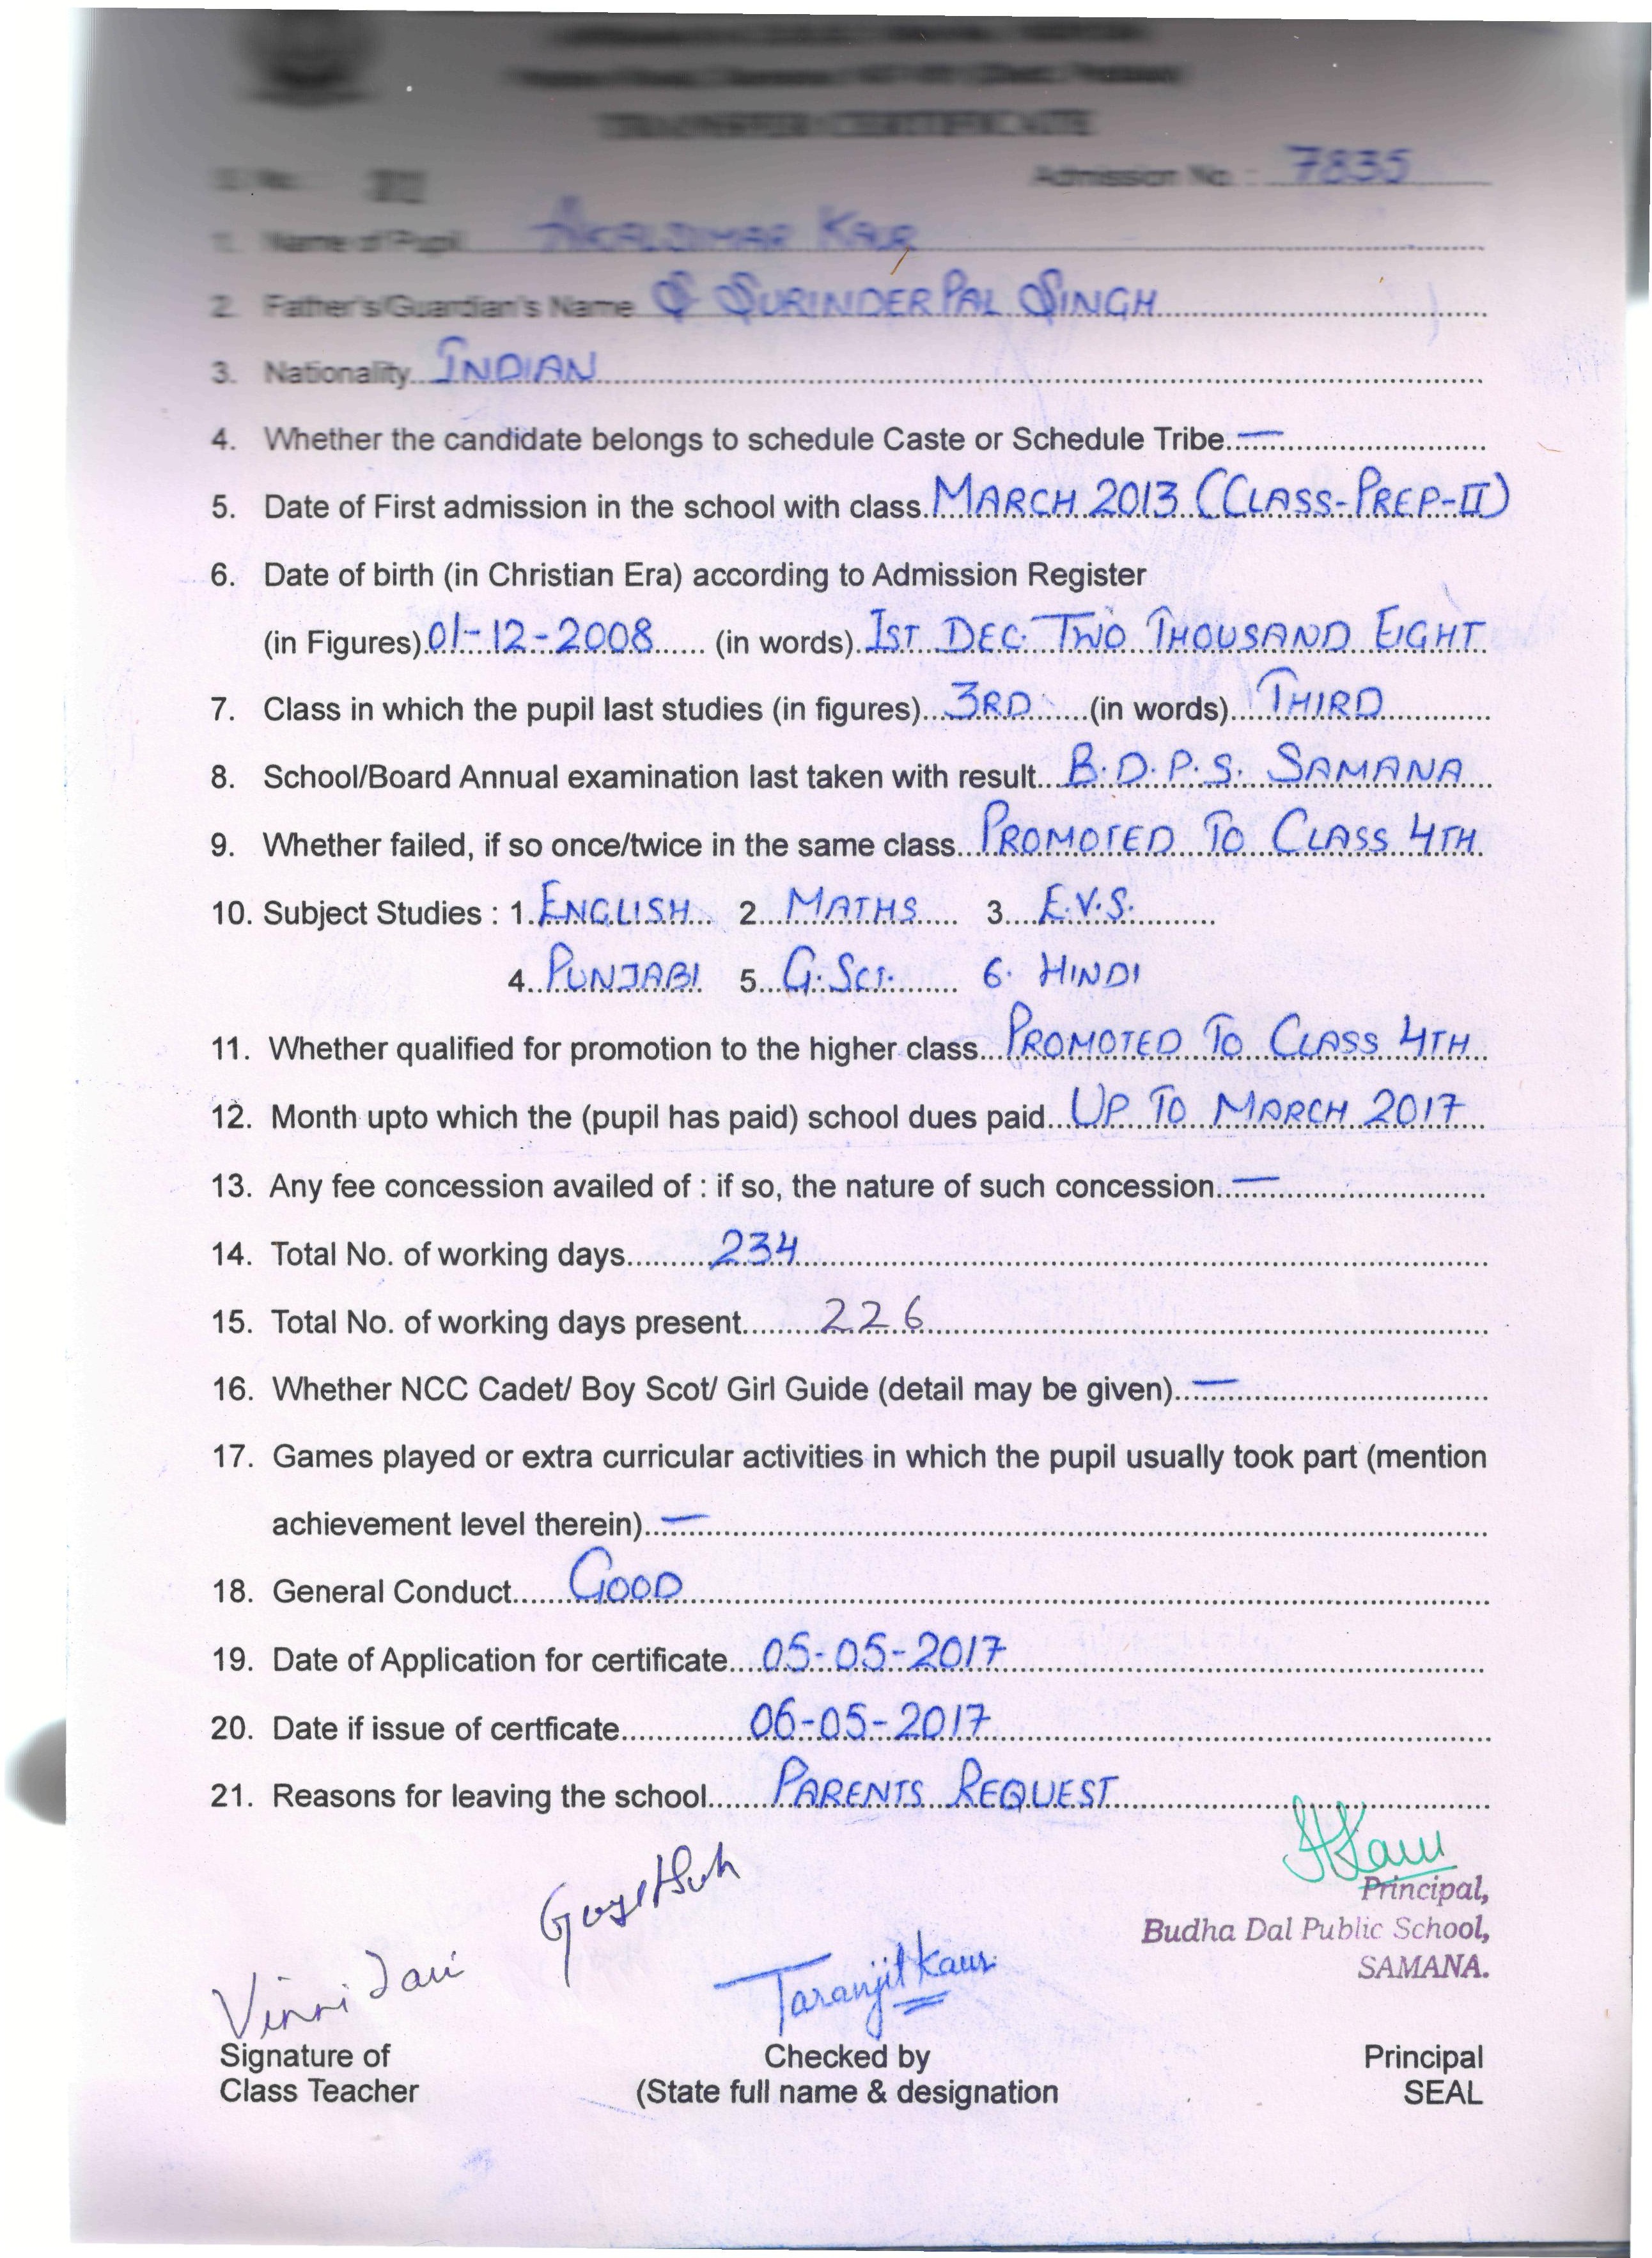 TRANSFER CERTIFICATE
Admission No. : 7835
1. Name of Pupil Kaur
2. Father's/Guardian's Name S Surinder Pal Singh
3. Nationality Indian
4. Whether the candidate belongs to schedule Caste or Schedule Tribe. —
5. Date of First admission in the school with class. March 2013 (Class-Prep-II)
6. Date of birth (in Christian Era) according to Admission Register
(in Figures) 01-12-2008 (in words) Ist Dec. Two Thousand Eight
7. Class in which the pupil last studies (in figures) 3rd (in words) Third
8. School/Board Annual examination last taken with result B.D.P.S. Samana
9. Whether failed, if so once/twice in the same class Promoted To Class 4th
10. Subject Studies : 1. English 2. Maths 3. E.V.S.
4. Punjabi 5. G.Sci. 6. Hindi
11. Whether qualified for promotion to the higher class Promoted To Class 4th
12. Month upto which the (pupil has paid) school dues paid Up To March 2017
13. Any fee concession availed of : if so, the nature of such concession. —
14. Total No. of working days 234
15. Total No. of working days present 226
16. Whether NCC Cadet/ Boy Scot/ Girl Guide (detail may be given) —
17. Games played or extra curricular activities in which the pupil usually took part (mention
achievement level therein) —
18. General Conduct Good
19. Date of Application for certificate 05-05-2017
20. Date if issue of certficate 06-05-2017
21. Reasons for leaving the school Parents Request
Kaur
Principal,
Budha Dal Public School,
SAMANA.
Vinni
Taranjit Kaur
Signature of Checked by Principal
Class Teacher (State full name & designation SEAL